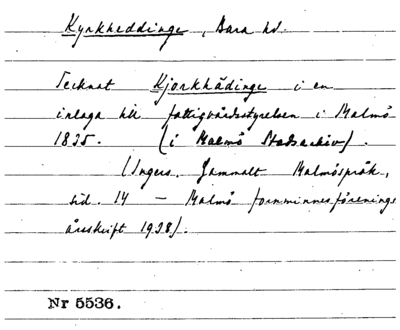 Kyrkheddinge, Bara hd.
Tecknat Kjorkhädinge i en
inlaga till fattigvårdsstyrelsen i Malmö
1835. (i Malmö Stadsarkiv).
(Ingers. Gammalt Malmöspråk,
sid. 14 — Malmö fornminnesförenings
årsskrift 1938).
Nr 5536.